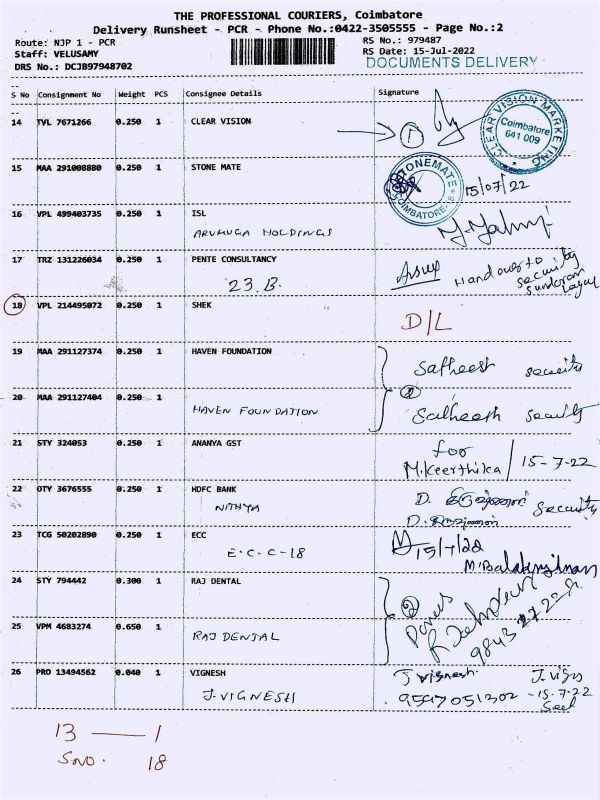 THE PROFESSIONAL COURIERS, Coimbatore
Delivery Runsheet - PCR - Phone No.:0422-3505555 - Page No.:2
Route: NJP 1 - PCR
RS No.: 979487
Staff: VELUSAMY
RS Date: 15-Jul-2022
DRS No.: DCJB97948702
DOCUMENTS DELIVERY
S No Consignment No Weight PCS Consignee Details Signature
14 TVL 7671266 0.250 1 CLEAR VISION
1
CLEAR VISION MARKETING
Coimbatore
641 009
15 MAA 291008880 0.250 1 STONE MATE
STONEMATE
COIMBATORE-18
15/07/22
16 VPL 499403735 0.250 1 ISL
ARUMUGA HOLDINGS
17 TRZ 131226034 0.250 1 PENTE CONSULTANCY
23.B.
Hand over to
security
18 VPL 214495072 0.250 1 SHEK
D/L
19 MAA 291127374 0.250 1 HAVEN FOUNDATION
Satheesh security
20 MAA 291127404 0.250 1
HAVEN FOUNDATION
2
Satheesh security
21 STY 324053 0.250 1 ANANYA GST
for
M.Keerthika / 15-7-22
22 OTY 3676555 0.250 1 HDFC BANK
NITHYA
D.
security
D.
23 TCG 50202890 0.250 1 ECC
E.C.C-18
15/7/22
24 STY 794442 0.300 1 RAJ DENTAL
2
25 VPM 4683274 0.650 1
RAJ DENTAL
26 PRO 13494562 0.040 1 VIGNESH
J.VIGNESH
J vignesh
9597051302
15.7.22
13 — 1
SNO. 18